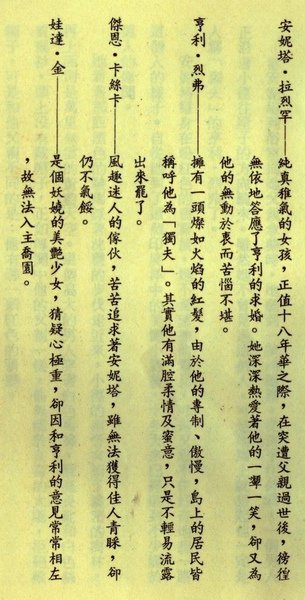 安妮塔・拉烈罕——純真稚氣的女孩，正值十八年華之際，在突遭父親過世後，徬徨
無依地答應了亨利的求婚。她深深熱愛著他的一顰一笑，卻又為
他的無動於衷而苦惱不堪。
亨利・烈弗——擁有一頭燦如火焰的紅髮，由於他的專制、傲慢，島上的居民皆
稱呼他為「獨夫」。其實他有滿腔柔情及蜜意，只是不輕易流露
出來罷了。
傑恩・卡絲卡——風趣迷人的傢伙，苦苦追求著安妮塔，雖無法獲得佳人青睬，卻
仍不氣餒。
娃達・金——是個妖嬈的美艷少女，猜疑心極重，卻因和亨利的意見常常相左
，故無法入主喬園。